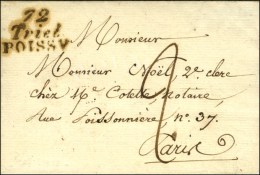 72
Triel
POISSY
Monsieur
Monsieur Noël, 2e. clerc
chèz Me. Colette, Notaire,
Rue Poissonnière No. 37.
Paris
2